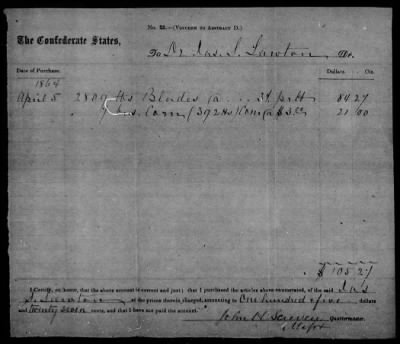 No. 22.—(Voucher to Abstract D.)
The Confederate States,
To Dr Jas. S. Lawton, Dr.
Date of Purchase. Dollars. Cts.
1864
April 5 2809 lbs Blades @ 3¢ pr lb 84.27
" 7 bus. Corn (392 lbs) Corn @ $3.00 21.00
$105.27
I Certify, on honor, that the above account is correct and just; that I purchased the articles above enumerated, of the said Jas
S. Lawton at the prices therein charged, amounting to One hundred & five dollars
and twenty seven cents, and that I have not paid the account.
John H Screven Quartermaster.